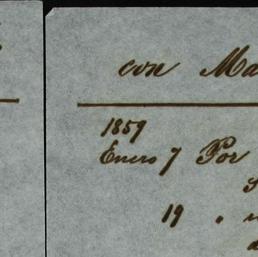 con Ma
1859
Enero 7 Por
19 "